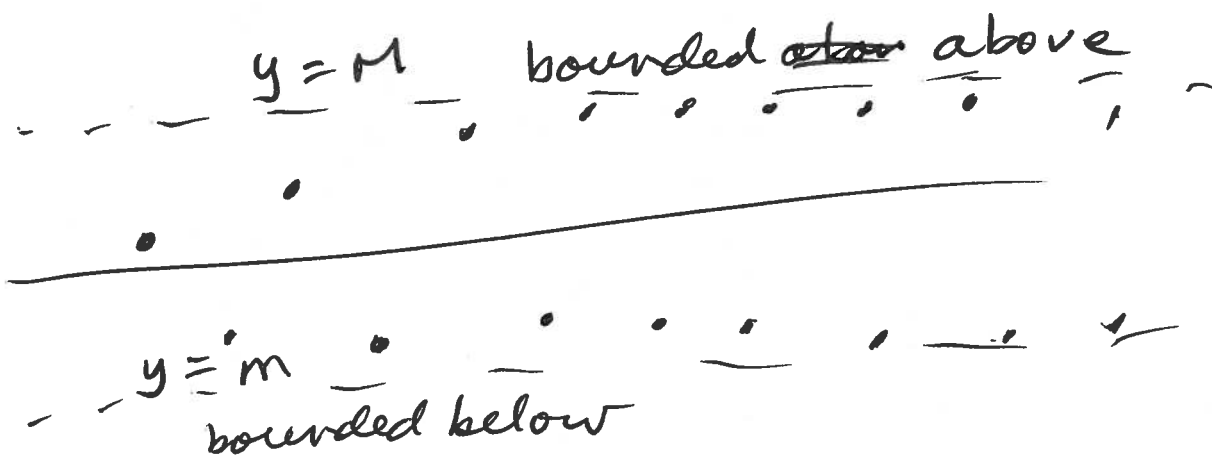 y = M bounded above
y = m
bounded below